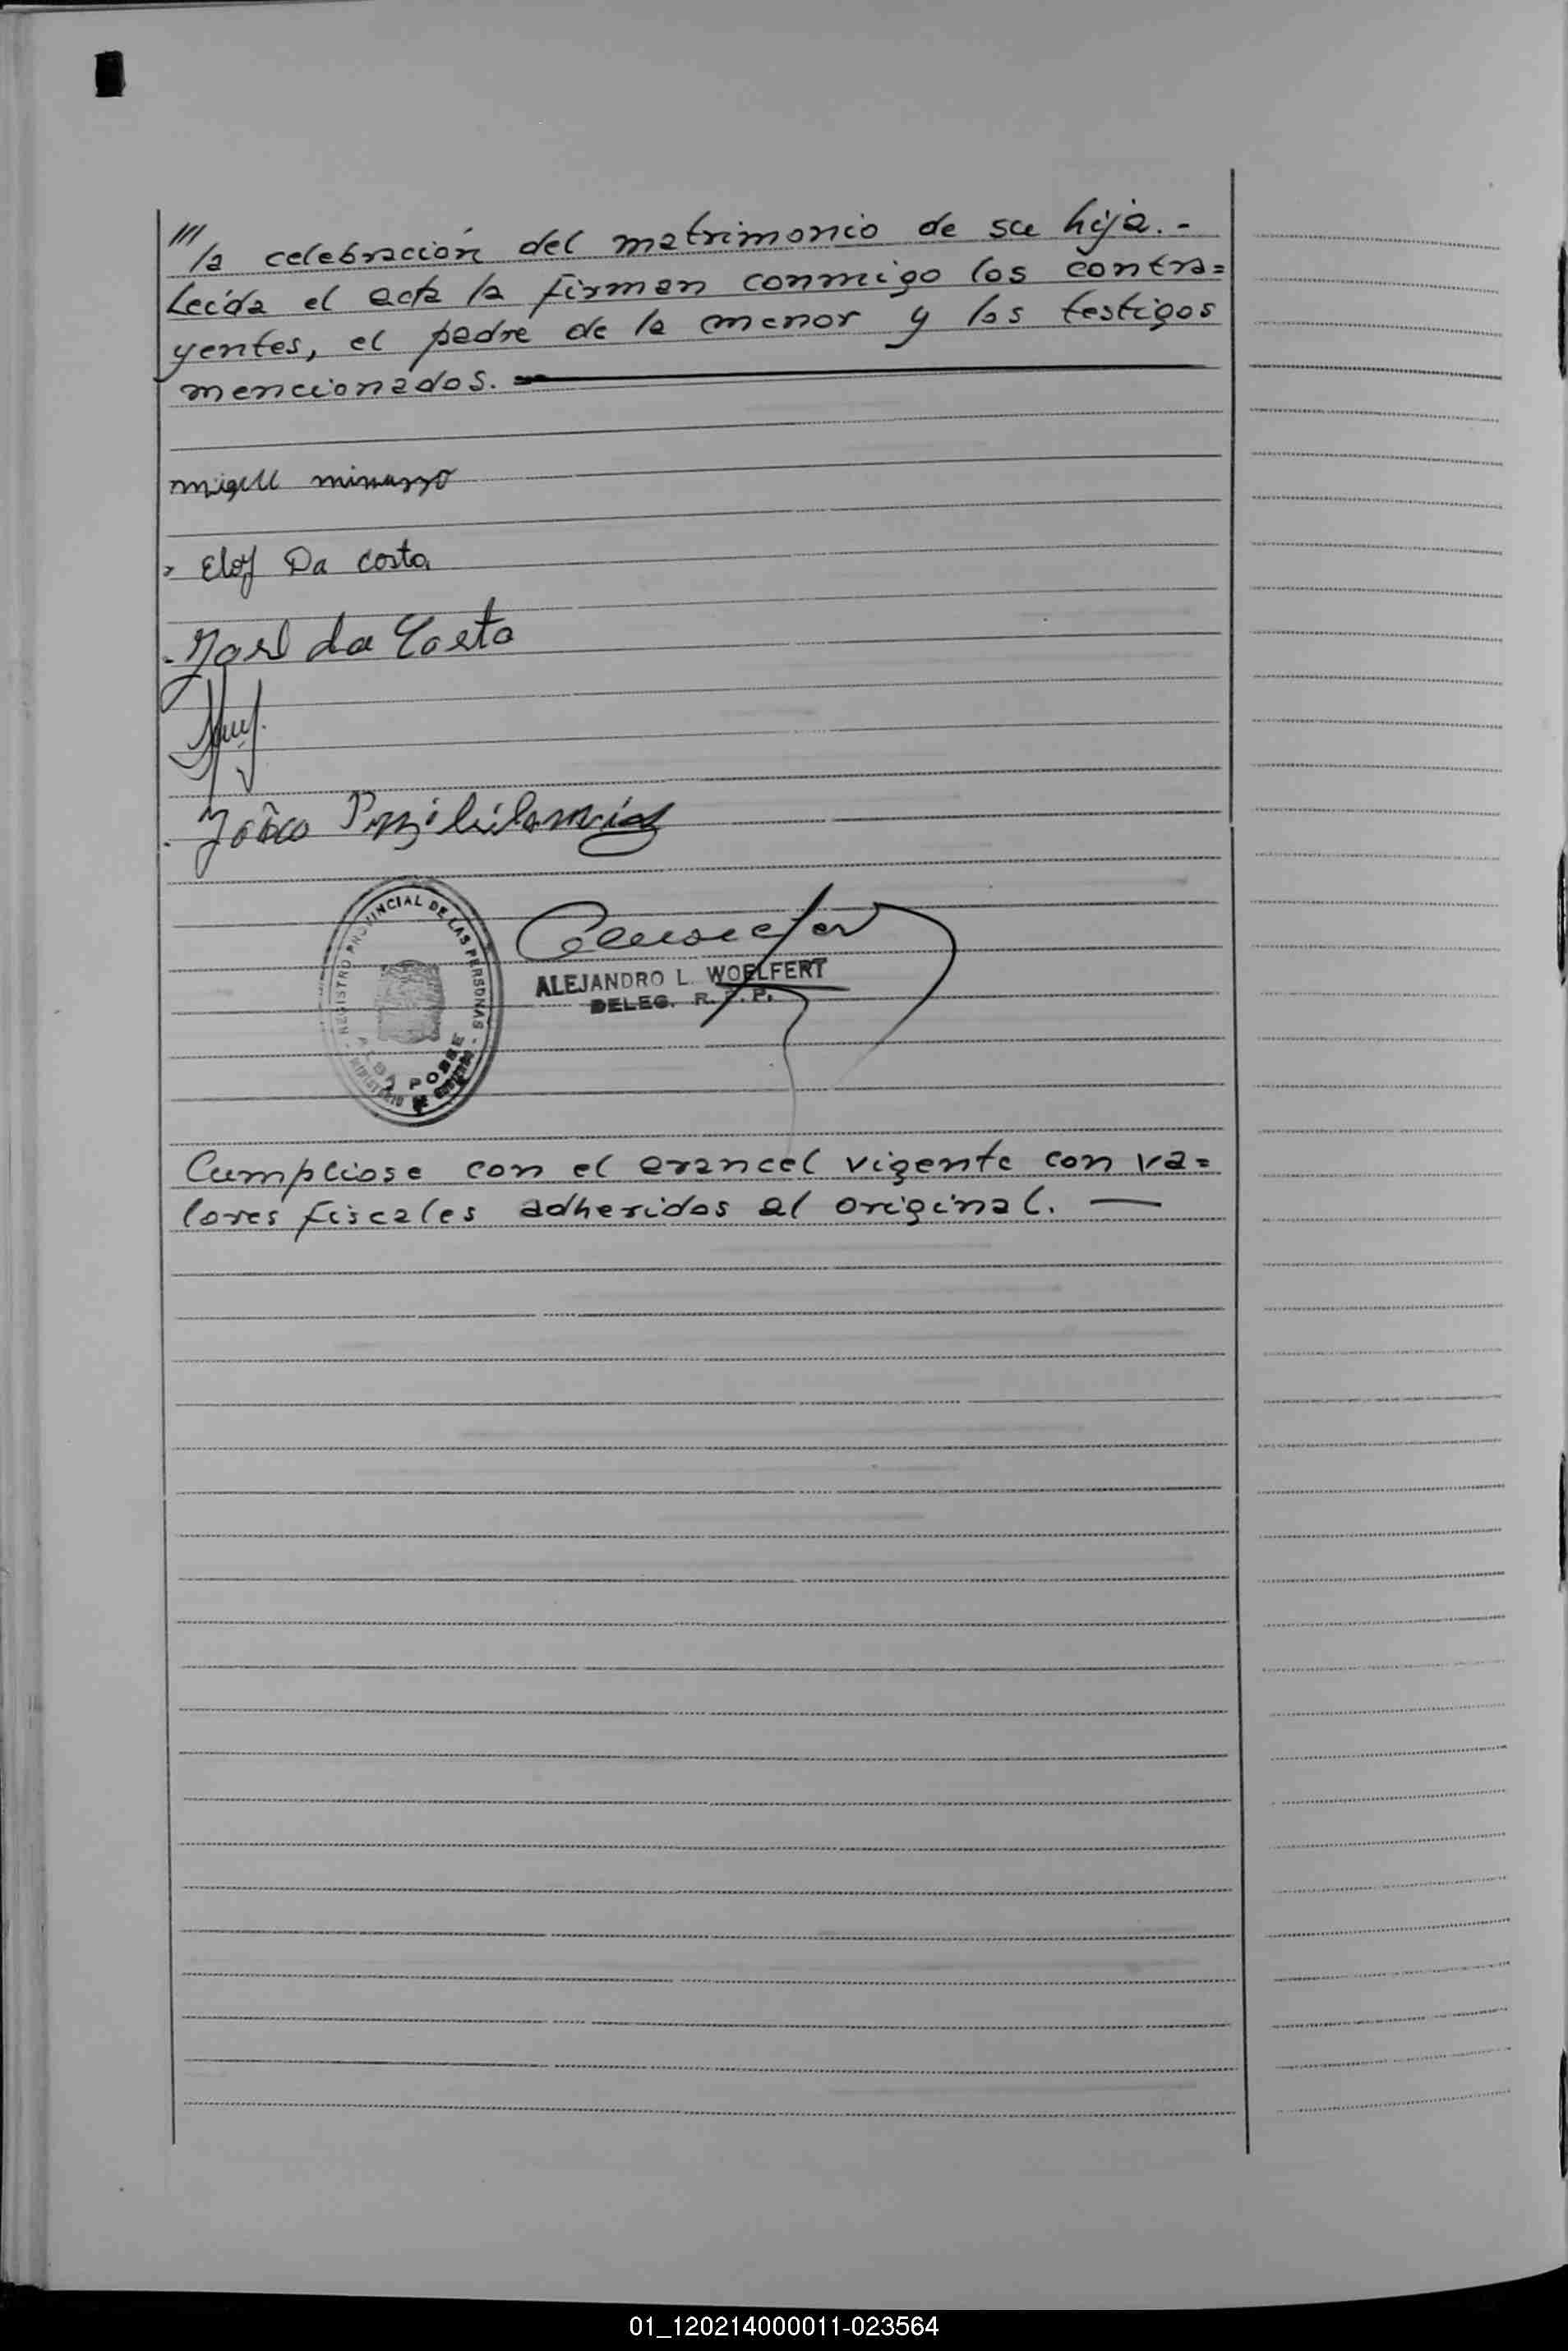 ///la celebración del matrimonio de su hija.-
Leída el acta la firman conmigo los contra=
yentes, el padre de la menor y los testigos
mencionados.
migell minazzo
Eloy Da costa
da Costa
João
REGISTRO PROVINCIAL DE LAS PERSONAS
ALBA POSSE
MINISTERIO DE GOBIERNO
ALEJANDRO L. WOELFERT
DELEG. R. P. P.
Cumpliose con el arancel vigente con va=
lores fiscales adheridos al original.
01_120214000011-023564